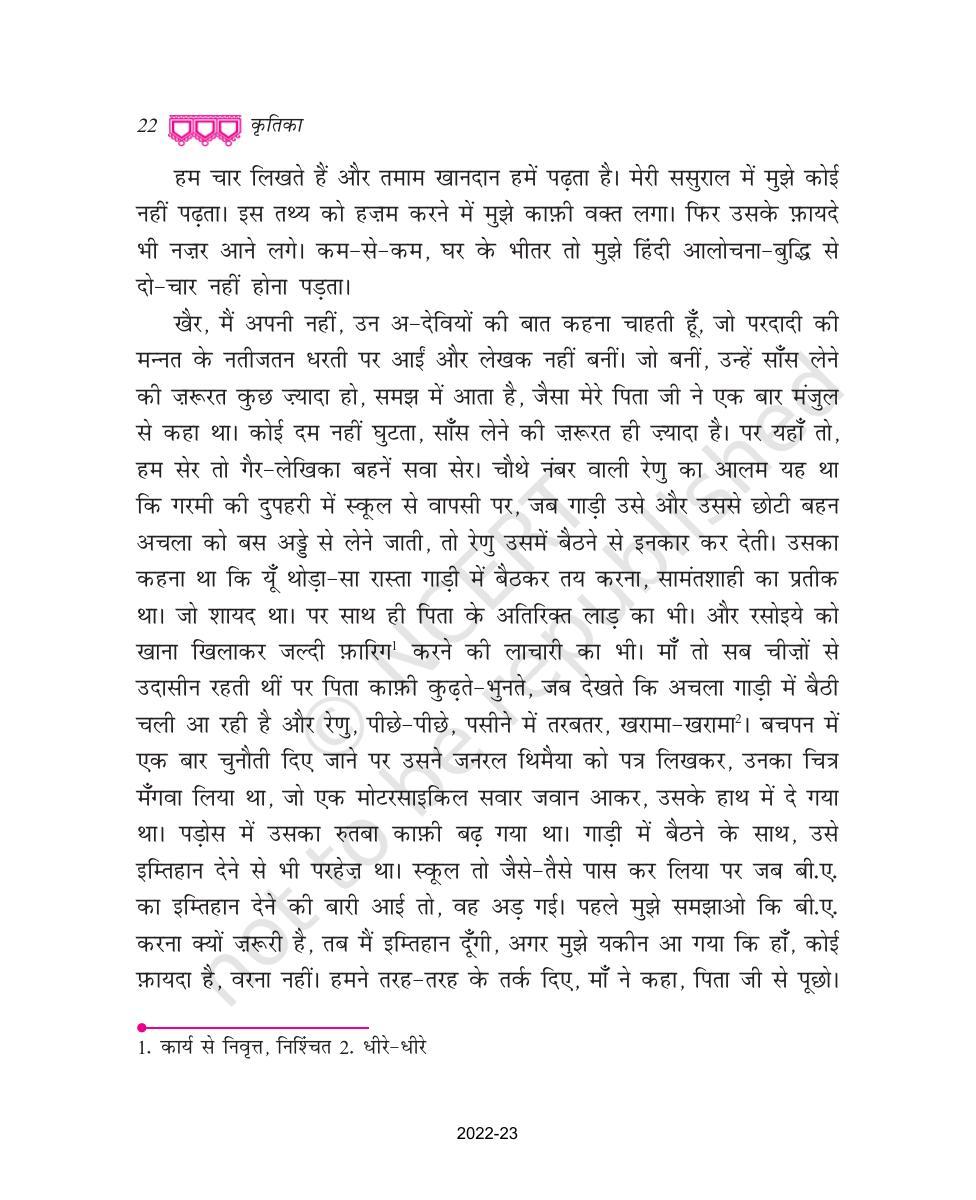 22 कृतिका
हम चार लिखते हैं और तमाम खानदान हमें पढ़ता है। मेरी ससुराल में मुझे कोई
नहीं पढ़ता। इस तथ्य को हज़म करने में मुझे काफ़ी वक्त लगा। फिर उसके फ़ायदे
भी नज़र आने लगे। कम-से-कम, घर के भीतर तो मुझे हिंदी आलोचना-बुद्धि से
दो-चार नहीं होना पड़ता।
खैर, मैं अपनी नहीं, उन अ-देवियों की बात कहना चाहती हूँ, जो परदादी की
मन्नत के नतीजतन धरती पर आईं और लेखक नहीं बनीं। जो बनीं, उन्हें साँस लेने
की ज़रूरत कुछ ज़्यादा हो, समझ में आता है, जैसा मेरे पिता जी ने एक बार मंजुल
से कहा था। कोई दम नहीं घुटता, साँस लेने की ज़रूरत ही ज़्यादा है। पर यहाँ तो,
हम सेर तो गैर-लेखिका बहनें सवा सेर। चौथे नंबर वाली रेणु का आलम यह था
कि गरमी की दुपहरी में स्कूल से वापसी पर, जब गाड़ी उसे और उससे छोटी बहन
अचला को बस अड्डे से लेने जाती, तो रेणु उसमें बैठने से इनकार कर देती। उसका
कहना था कि यूँ थोड़ा-सा रास्ता गाड़ी में बैठकर तय करना, सामंतशाही का प्रतीक
था। जो शायद था। पर साथ ही पिता के अतिरिक्त लाड़ का भी। और रसोइये को
खाना खिलाकर जल्दी फ़ारिग¹ करने की लाचारी का भी। माँ तो सब चीज़ों से
उदासीन रहती थीं पर पिता काफ़ी कुढ़ते-भुनते, जब देखते कि अचला गाड़ी में बैठी
चली आ रही है और रेणु, पीछे-पीछे, पसीने में तरबतर, खरामा-खरामा²। बचपन में
एक बार चुनौती दिए जाने पर उसने जनरल थिमैया को पत्र लिखकर, उनका चित्र
मँगवा लिया था, जो एक मोटरसाइकिल सवार जवान आकर, उसके हाथ में दे गया
था। पड़ोस में उसका रुतबा काफ़ी बढ़ गया था। गाड़ी में बैठने के साथ, उसे
इम्तिहान देने से भी परहेज़ था। स्कूल तो जैसे-तैसे पास कर लिया पर जब बी.ए.
का इम्तिहान देने की बारी आई तो, वह अड़ गई। पहले मुझे समझाओ कि बी.ए.
करना क्यों ज़रूरी है, तब मैं इम्तिहान दूँगी, अगर मुझे यकीन आ गया कि हाँ, कोई
फ़ायदा है, वरना नहीं। हमने तरह-तरह के तर्क दिए, माँ ने कहा, पिता जी से पूछो।
1. कार्य से निवृत्त, निश्चिंत 2. धीरे-धीरे
2022-23
© NCERT
not to be republished